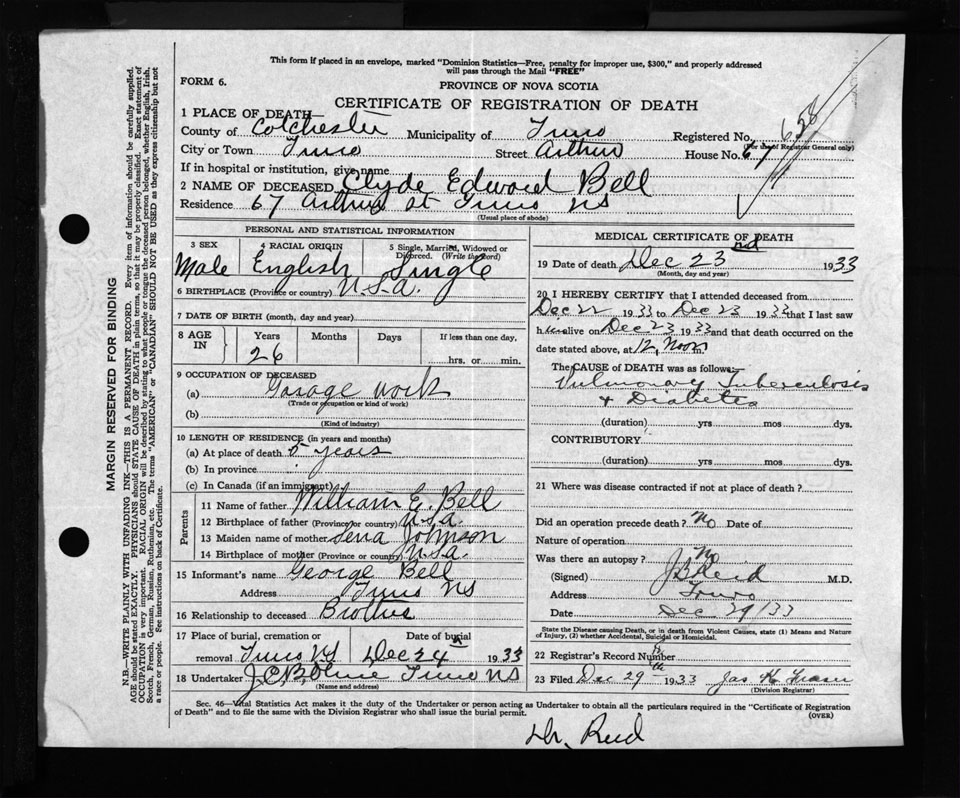 This form if placed in an envelope, marked "Dominion Statistics—Free, penalty for improper use, $300," and properly addressed
will pass through the Mail "FREE"
FORM 6.
PROVINCE OF NOVA SCOTIA
CERTIFICATE OF REGISTRATION OF DEATH
1 PLACE OF DEATH
County of Colchester Municipality of Truro Registered No. 658
(For use of Registrar General only)
City or Town Truro Street Arthur House No. 67
If in hospital or institution, give name
2 NAME OF DECEASED Clyde Edward Bell
Residence 67 Arthur st Truro NS
(Usual place of abode)
PERSONAL AND STATISTICAL INFORMATION
3 SEX 4 RACIAL ORIGIN 5 Single, Married, Widowed or Divorced. (Write the word)
Male English Single
6 BIRTHPLACE (Province or country) U.S.A.
7 DATE OF BIRTH (month, day and year)
8 AGE IN Years Months Days If less than one day,
26 hrs. or min.
9 OCCUPATION OF DECEASED
(a) Garage work
(Trade or occupation or kind of work)
(b)
(Kind of industry)
10 LENGTH OF RESIDENCE (in years and months)
(a) At place of death 5 years
(b) In province
(c) In Canada (if an immigrant)
Parents
11 Name of father William E. Bell
12 Birthplace of father (Province or country) U.S.A.
13 Maiden name of mother Sena Johnson
14 Birthplace of mother (Province or country) U.S.A.
15 Informant's name George Bell
Address Truro NS
16 Relationship to deceased Brother
17 Place of burial, cremation or Date of burial
removal Truro NS Dec 24th 1933
18 Undertaker Truro NS
(Name and address)
MEDICAL CERTIFICATE OF DEATH
19 Date of death Dec 23rd 1933
(Month, day and year)
20 I HEREBY CERTIFY that I attended deceased from
Dec 22 1933 to Dec 23 1933 that I last saw
him alive on Dec 23 1933 and that death occurred on the
date stated above, at 12, Noon m
The CAUSE OF DEATH was as follows:
Pulmonary Tuberculosis
+ Diabetes
(duration) yrs mos dys.
CONTRIBUTORY
(duration) yrs mos dys.
21 Where was disease contracted if not at place of death?
Did an operation precede death? No Date of
Nature of operation
Was there an autopsy? No
(Signed) J B Reid M.D.
Address Truro
Date Dec 29/33
State the Disease causing Death, or in death from Violent Causes, state (1) Means and Nature
of Injury, (2) whether Accidental, Suicidal or Homicidal.
22 Registrar's Record Number
23 Filed Dec 29 1933 Jas K. Fraser
(Division Registrar)
Sec. 46—Vital Statistics Act makes it the duty of the Undertaker or person acting as Undertaker to obtain all the particulars required in the "Certificate of Registration
of Death" and to file the same with the Division Registrar who shall issue the burial permit.
(OVER)
Dr. Reid
MARGIN RESERVED FOR BINDING
N.B.—WRITE PLAINLY WITH UNFADING INK—THIS IS A PERMANENT RECORD. Every item of information should be carefully supplied.
AGE should be stated EXACTLY. PHYSICIANS should STATE CAUSE OF DEATH in plain terms, so that it may be properly classified. Exact statement of
OCCUPATION is very important. RACIAL ORIGIN will be described by stating to what people or tongue the deceased person belonged, whether English, Irish,
Scotch, French, German, Russian, Ruthenian, etc. The terms "AMERICAN" or "CANADIAN" SHOULD NOT BE USED as they express citizenship but not
a race or people. See instructions on back of Certificate.